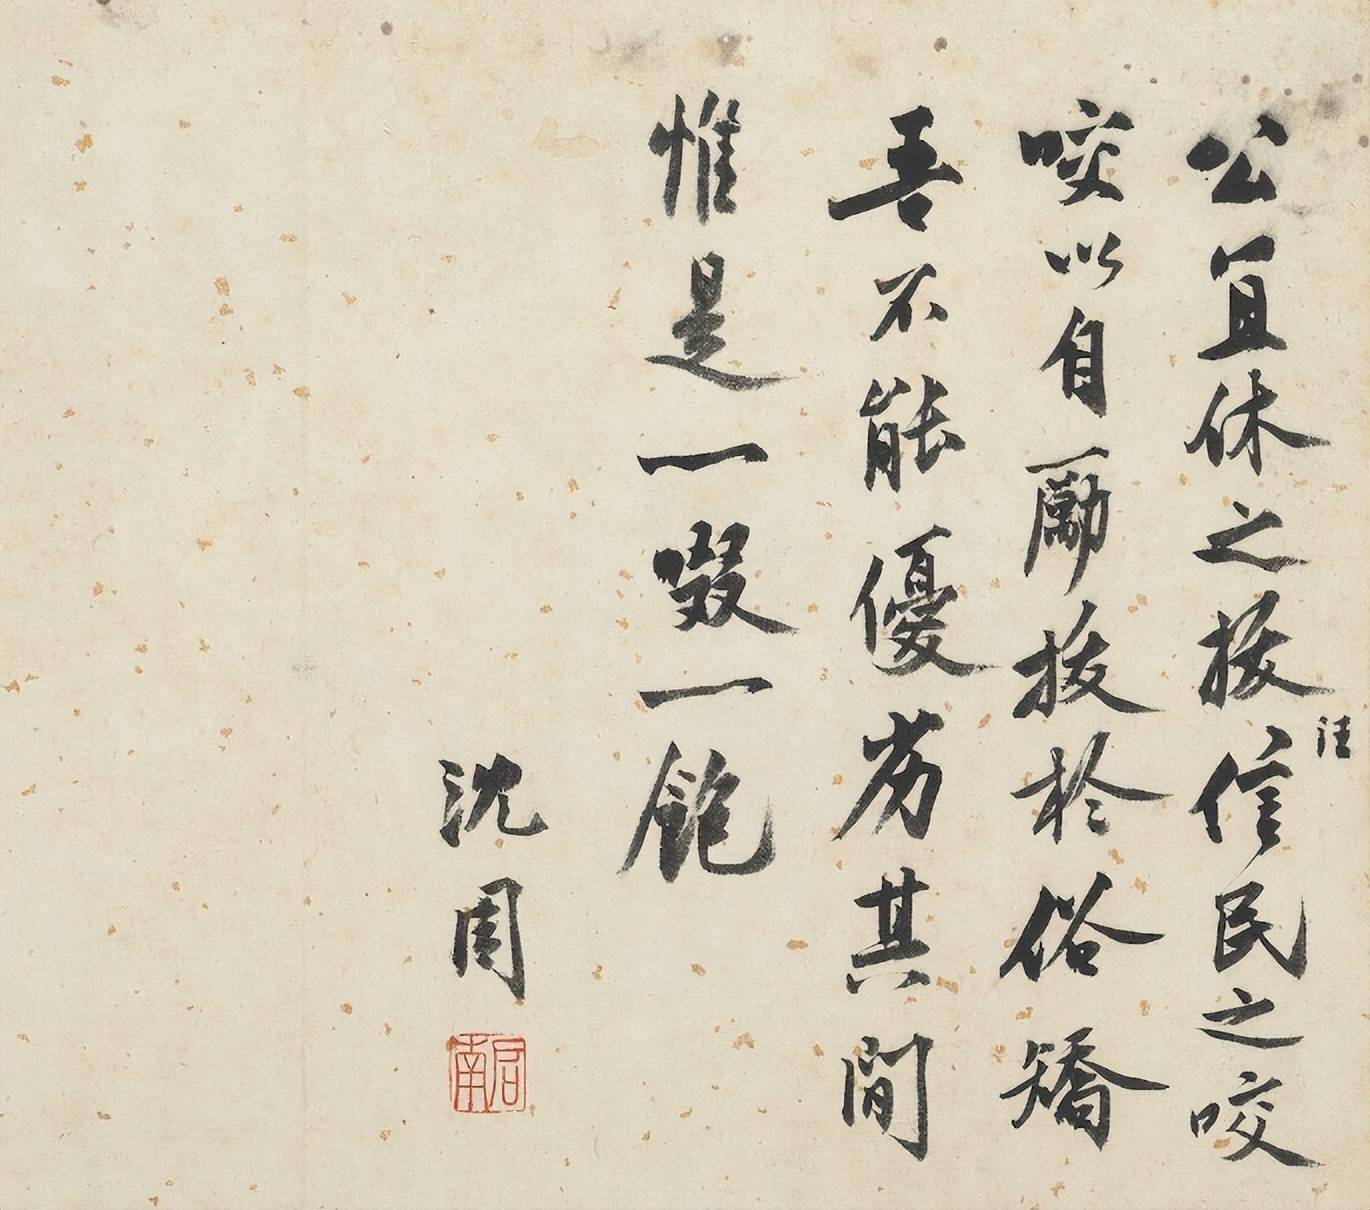 公宜休之拔汪信民之咬
咬以自勵拔於俗矯
吾不能優劣其間
惟是一啜一飽
沈周
启南